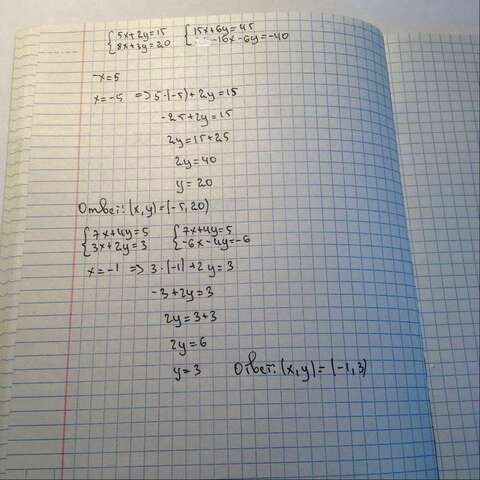 {5x+2y=15 {15x+6y=45
{8x+3y=20 {-16x-6y=-40
-x=5
x=-5 => 5·(-5)+2y=15
-25+2y=15
2y=15+25
2y=40
y=20
Ответ: (x,y)=(-5,20)
{7x+4y=5 {7x+4y=5
{3x+2y=3 {-6x-4y=-6
x=-1 => 3·(-1)+2y=3
-3+2y=3
2y=3+3
2y=6
y=3 Ответ: (x,y)=(-1,3)